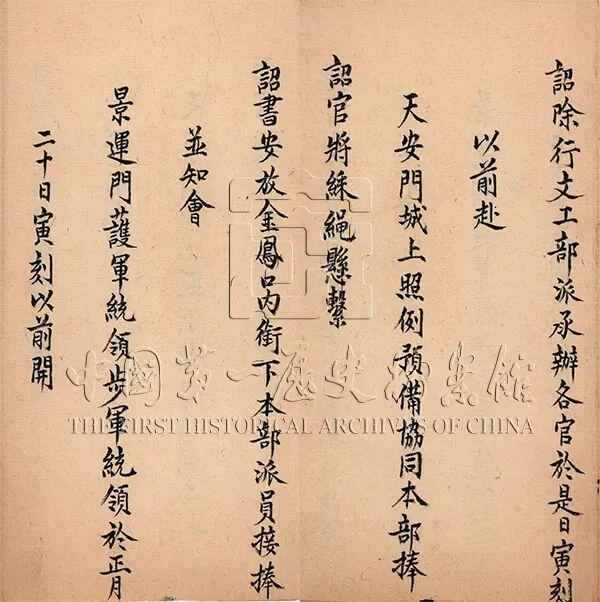 詔除行文工部派承辦各官於是日寅刻
以前赴
天安門城上照例預備協同本部捧
詔官將綵繩懸繫
詔書安放金鳳口內銜下本部派員接捧
並知會
景運門護軍統領步軍統領於正月
二十日寅刻以前開
中國第一歷史檔案館
THE FIRST HISTORICAL ARCHIVES OF CHINA